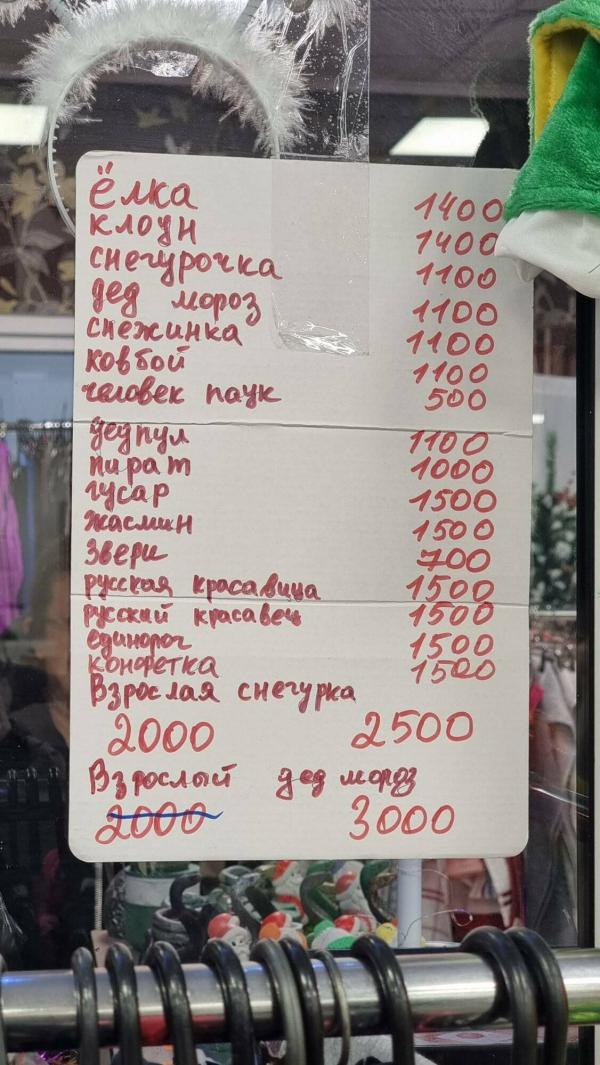 ёлка 1400
клоун 1400
снегурочка 1100
дед мороз 1100
снежинка 1100
ковбой 1100
человек паук 500
дедпул 1100
пират 1000
гусар 1500
жасмин 1500
звери 700
русская красавица 1500
русский красавец 1500
единорог 1500
конфетка 1500
Взрослая снегурка
2000 2500
Взрослый дед мороз
2000 3000